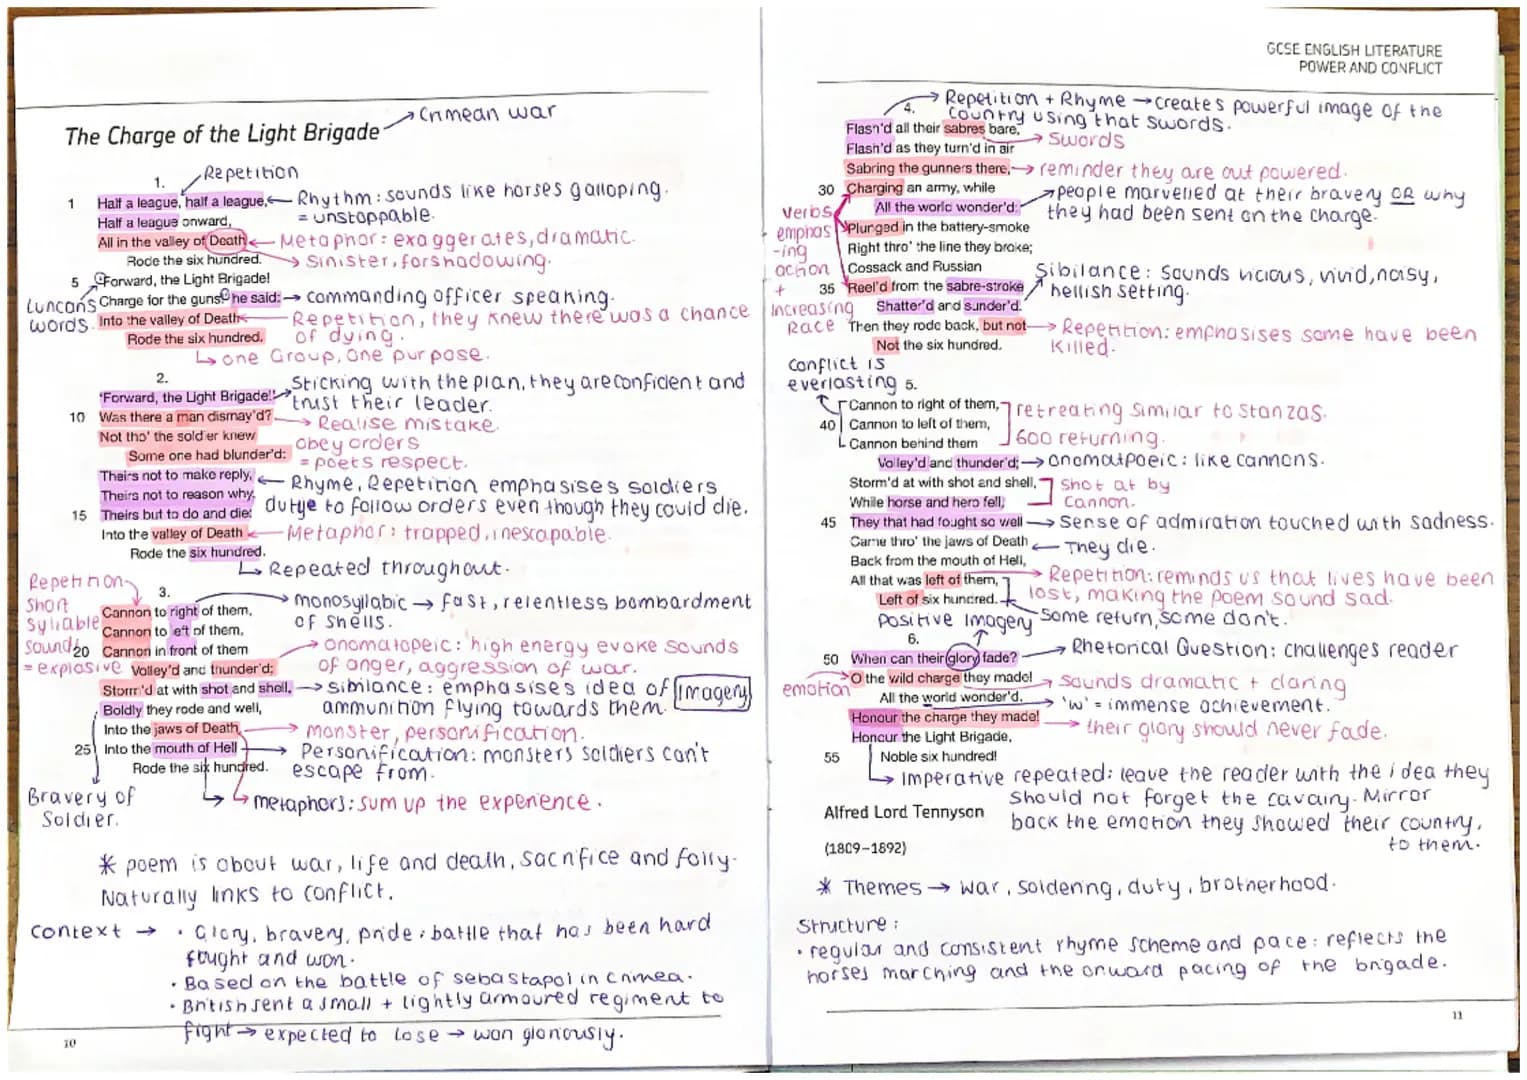 The Charge of the Light Brigade → Crimean war
1. Repetition
1 Half a league, half a league, ← Rhythm: sounds like horses galloping.
Half a league onward, = unstoppable.
All in the valley of Death ← Metaphor: exaggerates, dramatic.
Rode the six hundred. → Sinister, forshadowing.
5 Forward, the Light Brigade!
Luncans words.
Charge for the guns! he said: → commanding officer speaking.
Into the valley of Death ← Repetition, they knew there was a chance of dying.
Rode the six hundred.
↳ one Group, one purpose.
2.
'Forward, the Light Brigade!' → Sticking with the plan, they are confident and trust their leader.
10 Was there a man dismay'd? → Realise mistake.
Not tho' the soldier knew obey orders
Some one had blunder'd: = poets respect.
Theirs not to make reply, ← Rhyme, Repetition emphasises soldiers
Theirs not to reason why,
15 Theirs but to do and die: dutye to follow orders even though they could die.
Into the valley of Death ← Metaphor: trapped, inescapable.
Rode the six hundred.
↳ Repeated throughout.
3.
Repetition short syllable sound = explosive
Cannon to right of them, → monosyllabic → fast, relentless bombardment of shells.
Cannon to left of them,
20 Cannon in front of them → onomatopeic: high energy evoke sounds
Volley'd and thunder'd; of anger, aggression of war.
Storm'd at with shot and shell, → sibilance: emphasises idea of Imagery
Boldly they rode and well, ammunition flying towards them.
Into the jaws of Death, → monster, personification.
25 Into the mouth of Hell → Personification: monsters soldiers can't
Rode the six hundred. escape from.
Bravery of Soldier.
↳ metaphors: sum up the experience.
* poem is about war, life and death, sacrifice and folly.
Naturally links to conflict.
context → · Glory, bravery, pride: battle that has been hard
fought and won.
· Based on the battle of sebastapol in Crimea.
· British sent a small + lightly armoured regiment to
fight → expected to lose → won gloriously.
10
GCSE ENGLISH LITERATURE
POWER AND CONFLICT
4. → Repetition + Rhyme → creates powerful image of the
country using that swords.
Flash'd all their sabres bare, → Swords
Flash'd as they turn'd in air
Sabring the gunners there, → reminder they are out powered.
30 Charging an army, while
All the world wonder'd: → people marvelled at their bravery OR why
they had been sent on the charge.
verbs emphas-ing action + increasing Race
Plunged in the battery-smoke
Right thro' the line they broke;
Cossack and Russian
35 Reel'd from the sabre-stroke Sibilance: sounds vicious, vivid, noisy,
Shatter'd and sunder'd. hellish setting.
Then they rode back, but not → Repetition: emphasises some have been
Not the six hundred. killed.
conflict is everlasting
5.
Cannon to right of them, retreating similar to stanza 3.
40 Cannon to left of them,
Cannon behind them 600 returning.
Volley'd and thunder'd; → onomatpoeic: like cannons.
Storm'd at with shot and shell, Shot at by
While horse and hero fell, Cannon.
45 They that had fought so well → sense of admiration touched with sadness.
Came thro' the jaws of Death ← They die.
Back from the mouth of Hell,
All that was left of them, → Repetition: reminds us that lives have been
Left of six hundred. lost, making the poem sound sad.
Some return, some don't.
positive Imagery
6.
50 When can their glory fade? → Rhetorical Question: challenges reader
emotion
O the wild charge they made! → sounds dramatic + daring
All the world wonder'd. → 'w' = immense achievement.
Honour the charge they made! → their glory should never fade.
Honour the Light Brigade,
55 Noble six hundred!
↳ Imperative repeated: leave the reader with the idea they
should not forget the cavalry. Mirror
Alfred Lord Tennyson
back the emotion they showed their country,
to them.
(1809–1892)
* Themes → war, soldering, duty, brotherhood.
Structure:
· regular and consistent rhyme scheme and pace: reflects the
horses marching and the onward pacing of the brigade.
11